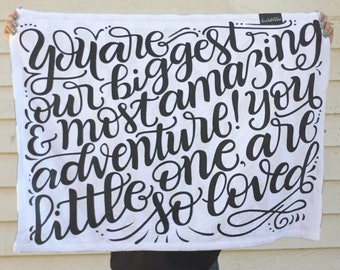 You are
our biggest
& most amazing
adventure! You
little one, are
so loved